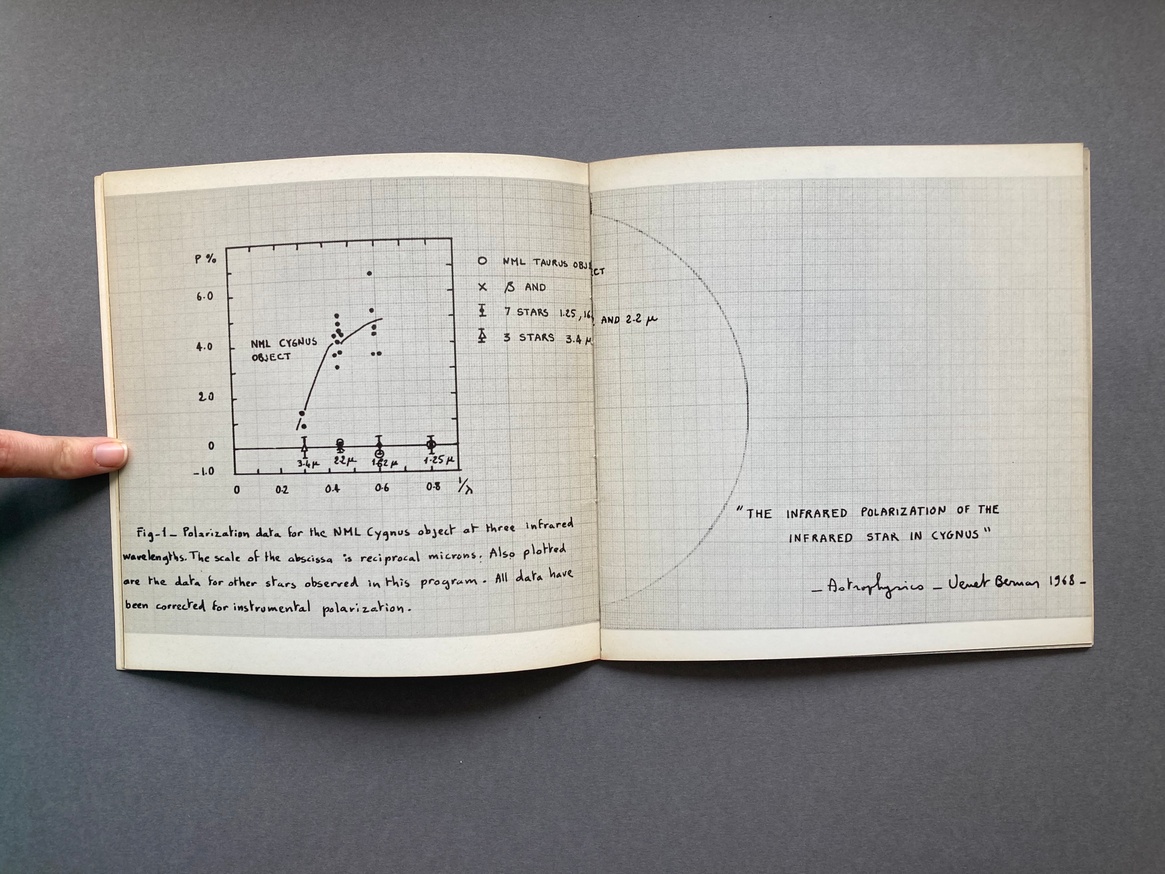 P %
6.0
4.0
2.0
0
-1.0
NML CYGNUS
OBJECT
3.4 μ
2.2 μ
1.25 μ
0 0.2 0.4 0.6 0.8 1/λ
O NML TAURUS OBJECT
X β AND
7 STARS 1.25, AND 2.2 μ
3 STARS 3.4 μ
Fig-1_ Polarization data for the NML Cygnus object at three infrared
wavelengths. The scale of the abscissa is reciprocal microns. Also plotted
are the data for other stars observed in this program. All data have
been corrected for instrumental polarization.
"THE INFRARED POLARIZATION OF THE
INFRARED STAR IN CYGNUS"
_ Astrophysics _ Venet Bernar 1968 -